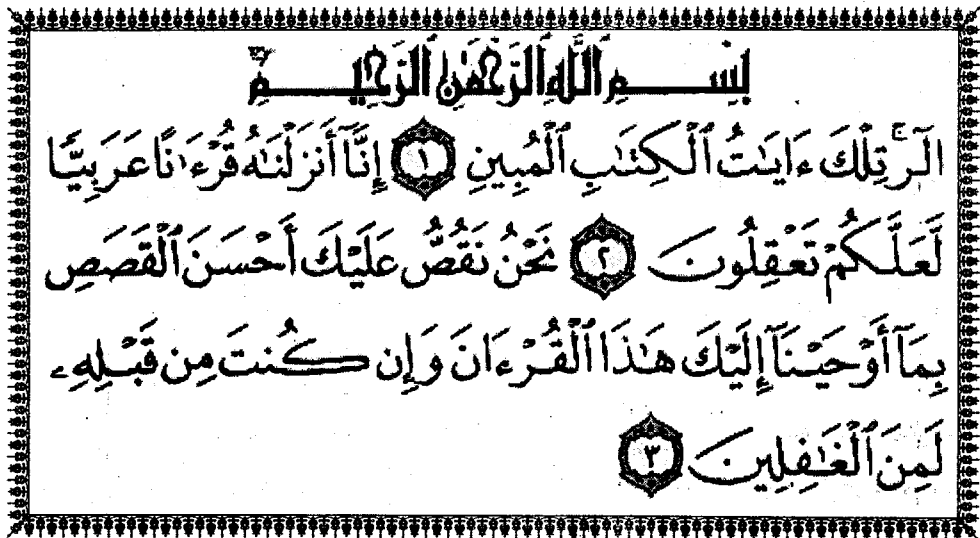 بِسْمِ ٱللَّهِ ٱلرَّحْمَٰنِ ٱلرَّحِيمِ
الٓر ۚ تِلْكَ ءَايَٰتُ ٱلْكِتَٰبِ ٱلْمُبِينِ ١ إِنَّآ أَنزَلْنَٰهُ قُرْءَٰنًا عَرَبِيًّا
لَّعَلَّكُمْ تَعْقِلُونَ ٢ نَحْنُ نَقُصُّ عَلَيْكَ أَحْسَنَ ٱلْقَصَصِ
بِمَآ أَوْحَيْنَآ إِلَيْكَ هَٰذَا ٱلْقُرْءَانَ وَإِن كُنتَ مِن قَبْلِهِۦ
لَمِنَ ٱلْغَٰفِلِينَ ٣